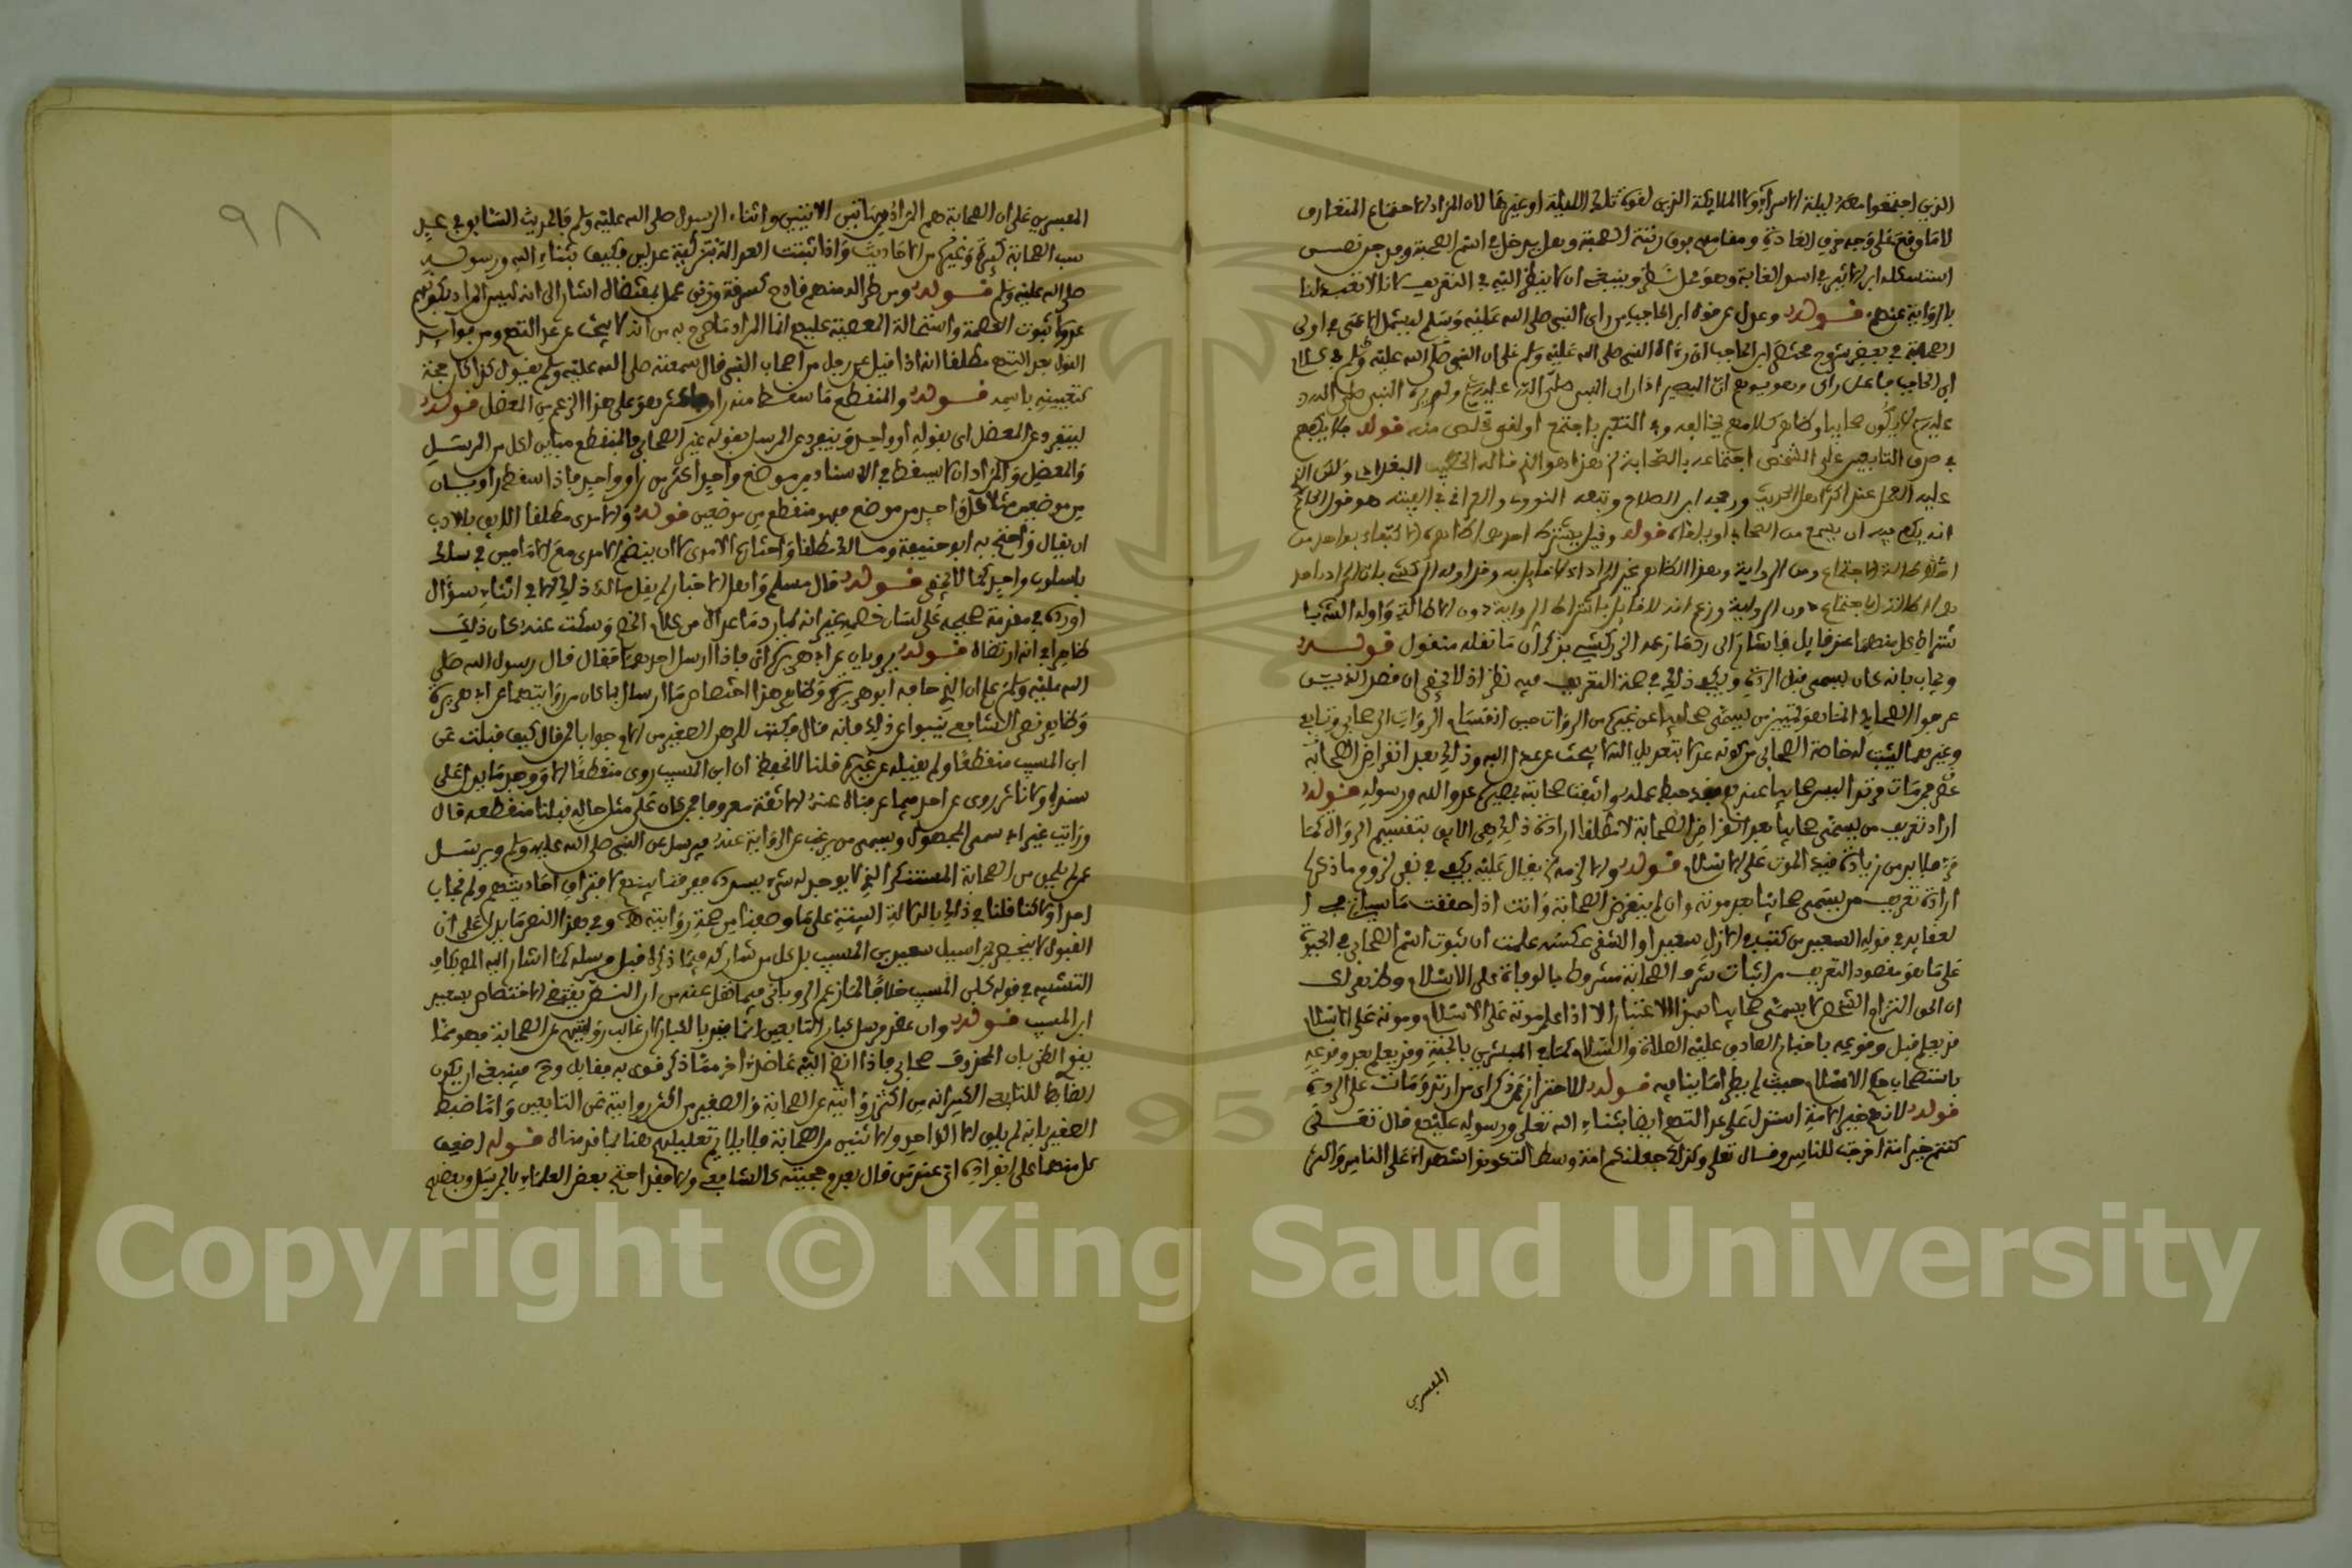 الذين اجتمعوا معه ليلة الاسراء والملايكة الذين لقوه تلك الليلة او غيرها لان المراد الاجتماع المتعارف
لا ما وقع على وجه خرق العادة ومقامهم فوق رتبة الصحبة وهل يدخل في اسم الصحبة
استشكله ابن الاثير في اسد الغابة وهو محل نظر وينبغي ان لا ينظر اليه في التعريف لانا لا تعبد لنا
بالرواية عنهم قوله وعدل عن قول ابن الحاجب من راى النبي صلى الله عليه وسلم ليشمل الاعمى في اول
الصحابة في بعض شروح مختصر ابن الحاجب ان رءاه النبي صلى الله عليه وسلم على ان النبي صلى الله عليه وسلم في كلام
ابن الحاجب فاعل راى
عليه لا يكون صحابيا وظاهر كلامهم يخالفه وفي التعبير باجتمع او لقي تخلص منه قوله فلا يكفي
في صدق التابعي على الشخص اجتماعه بالصحابة هذا هو الذي قاله الخطيب البغدادي ولكن الذي
عليه العمل عند اكثر اهل الحديث ورجحه ابن الصلاح وتبعه النووي والعراقي في الفيته هو قول الحاكم
انه يكفي فيه ان يسمع من الصحابي او يلقاه قوله وقيل يشترط احدهما
الاجتماع ومن الرواية وهذا الظاهر غير المراد اذ لا قايل به وقد اوله الزركشي بان المراد احد
الاجتماع دون الرواية وزعم انه لا قايل باشتراط الرواية دون الاطالة واوله الشريا
شتراط كل منهما عند قايل فاشار الى رد ما زعمه الزركشي بذكر ان ما نقله منقول قوله
ويجاب بانه كان يسمى قبل الردة ويكفي ذلك في صحة التعريف فيه نظر اذ لا يخفى ان قصد الذين
عرفوا الصحابي انما هو تمييز من يسمى صحابيا عن غيره من الرواة حين انقسام الرواة الى صحابي وتابعي
وغيرهما ليثبت له خاصة الصحابي من كونه عدلا بتعديل الله لا يبحث عن عدالته وذلك بعد انقراض الصحابة
فمن مات مرتدا ليس صحابيا عندهم فقد حبط عمله وانتفت صحابته بخبر الله ورسوله قوله
اراد تعريف من يسمى صحابيا بعد انقراض الصحابة لا مطلقا ارادة ذلك هي اللايق بتقسيم الرواة كما
مر فلا بد من زيادة قيد الموت على الاسلام قوله والا لزمه يقال عليه يكفي في نفي لزوم ما ذكر
ارادة تعريف من يسمى صحابيا بعد موته وان لم ينقرض الصحابة وانت اذا حققت ما سياتي في ا
لعقايد في قوله السعيد من كتبه في الازل سعيدا والشقي عكسه علمت ان ثبوت اسم الصحابي في الحيوة
على ما هو مقصود التعريف من اثبات شرف الصحابة مشروط بالوفاة على الاسلام
ان الشخص لا يسمى صحابيا بهذا الاعتبار الا اذا علم موته على الاسلام وموته على الاسلام
قد يعلم قبل وقوعه باخبار الصادق عليه الصلاة والسلام كما في المبشرين بالجنة وقد يعلم بعد وقوعه
باستصحاب حكم الاسلام حيث لم يطرا ما ينافيه قوله للاحتراز عمن ذكر اي من ارتد ومات على الردة
قوله لانهم خير الامة استدل على عدالتهم ايضا بثناء الله تعالى ورسوله عليهم قال تعالى
كنتم خير امة اخرجت للناس وقال تعلى وكذلك جعلنكم امة وسطا لتكونوا شهداء على الناس واكثر
المفسرين
٩٨
المفسرين على ان الصحابة هم المراد من هاتين الايتين واثناء الرسول صلى الله عليه وسلم فالحديث السابق في عيب
سب الصحابة كثيرة وغيره من الاحاديث واذا ثبتت العدالة بتزكية عدلين فكيف بثناء الله ورسوله
صلى الله عليه وسلم قوله ومن طرا له منهم قادح كسرقة وزنى عمل بمقتضاه اشار الى انه ليس المراد بكونهم
عدولا ثبوت العصمة واستحالة المعصية عليهم انما المراد ما صرح به من انه لا يبحث عن عدالتهم ومن فوايد
القول بعدالتهم مطلقا انه اذا قيل عن رجل من اصحاب النبي قال سمعته صلى الله عليه وسلم يقول كذا كان حجة
كتعيينه باسمه قوله والمنقطع ما سقط منه راو فاكثر هو على هذا اعم من المعضل قوله
لينفرد عن المعضل اي بقوله او واحد وينفرد عن المرسل بقوله غير الصحابي فالمنقطع مباين لكل من المرسل
والمعضل والمراد ان لا يسقط في الاسناد من موضع واحد اكثر من راو واحد فاذا سقط راويان
من موضعين مثلا كل واحد من موضع فهو منقطع من موضعين قوله والامدي مطلقا اللايق بالادب
ان يقال واحتج به ابو حنيفة ومالك مطلقا واختاره الامدي لا ان ينظم الامدي مع الامامين في سلك
باسلوب واحد كما لا يخفى قوله قال مسلم واهل الاخبار لم يقل مسلم ذلك الا في اثناء سوال
اورده في مقدمة صحيحه على لسان خصمه غير انه لما رد ما عداه من كلام الخصم وسكت عنه كان ذلك
ظاهرا في انه ارتضاه قوله يرويان عن ابي هريرة اتى فاذا ارسل احدهما فقال قال رسول الله صلى
الله عليه وسلم علم ان الذي حدثه ابو هريرة وظاهر هذا اختصاص ما ارسل بما كان من روايتهما عن ابي هريرة
وظاهر نص الشافعي ينبو عن ذلك فانه قال في كتب الرهن الصغير من الام جوابا لمن قال كيف قبلت عن
ابن المسيب منقطعا ولم تقبله عن غيره قلنا لا نحفظ ان ابن المسيب روى منقطعا الا وجدنا ما يدل على
سنده ولا اثر روى عن احد فيما عرفناه عنه الا ثقة معروفا فمن كان على مثل حاله قبلنا منقطعه قال
ورايت غيره يسمى المجهول ويسمى من يرغب عن الرواية عنه ويرسل عن النبي صلى الله عليه وسلم ويرسل
عمن لم يلحق من الصحابة المستنكر الذي لا يوجد له شيء يسدده ففرقنا بينهم لافتراق احاديثهم ولم نحاب
احدا ولاكنا قلنا في ذلك بالدلالة البينة على ما وصفنا من صحة روايته اهـ وفي هذا النص ما يدل على ان
القبول لا يختص بمراسيل سعيد بن المسيب بل كل من شاركه فيما ذكره قبل مرسله كما اشار اليه المص بكاف
التشبيه في قوله كابن المسيب خلافا لما زعم الروياني فيما نقل عنه من ان النص يقتضي الاختصاص بسعيد
ابن المسيب قوله وان عضد مرسل كبار التابعين انما قيد بالكبار لان غالب روايتهم عن الصحابة فهو مما
يقوي الظن بان المحذوف صحابي فاذا انضم اليه عاضد اخر مما ذكر قوي به فقابل وح فينبغي ان يكون
الضابط للتابعي الكبير انه من اكثر روايته عن الصحابة والصغير من اكثر روايته عن التابعين واما ضبط
الصغير بانه لم يلق الا الواحد والاثنين من الصحابة فلا يلايم تعليلهم هنا بما قدمناه قوله اضعف
كل منهما على انفراده اي عند من قال بعدم حجيته كالشافعي والا فقد احتج بعض العلماء بالمرسل وبعضهم
Copyright © King Saud University